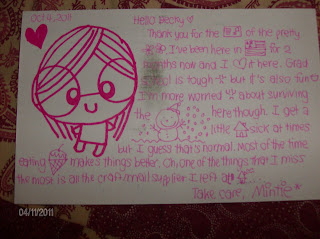 Oct 4, 2011
Hello Becky
Thank you for the of the pretty
I've been here in for 2
months now and I it here. Grad
is tough but it's also fun
I'm more worried about surviving
the here though. I get a
little sick at times
but I guess that's normal. Most of the time
eating makes things better. Oh, one of the things that I miss
the most is all the craft/mail supplies I left at
Take care, Mintie
04/11/2011